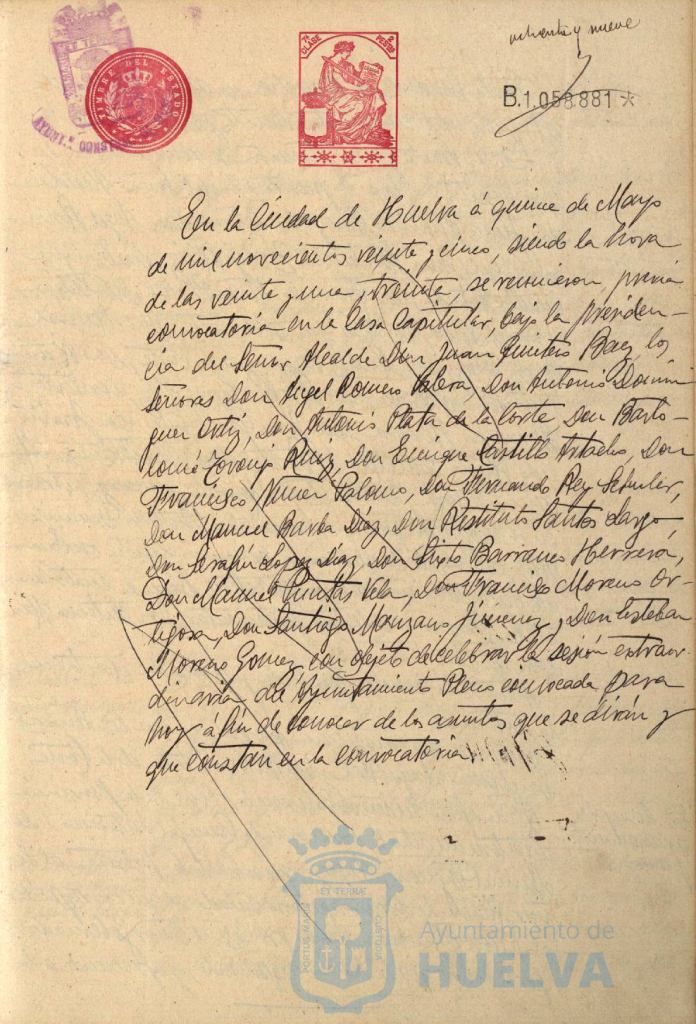 ochenta y nueve
TIMBRE DEL ESTADO
7ª CLASE
2 PESETAS
AYUNT.º CONST
B.1.058.881 *
En la Ciudad de Huelva á quince de Mayo
de mil novecientos veinte y cinco, siendo la hora
de las veinte y una y treinta, se reunieron, previa
convocatoria en la Casa Capitular, bajo la presiden-
cia del Señor Alcalde Don Juan Quintero Baez, los
señores Don Angel Romero Valera, Don Antonio Domin
guez Ortiz, Don Antonio Plata de la Corte, Don Barto-
lomé Toronjo Ruiz, Don Enrique Castillo, Don
Francisco Nuñez Palomo, Don Fernando Rey,
Don Manuel Barba Díaz, Don Restituto Santos Largo,
Don Serafín Lopez Díaz, Don Sixto Barranco Herrera,
Don Manuel Puntas Vela, Don Francisco Moreno Or-
tigosa, Don Santiago Manzano Jimenez y Don Esteban
Moreno Gomez, con objeto de celebrar la sesión extraor
dinaria del Ayuntamiento Pleno convocada para
hoy á fin de conocer de los asuntos que se dirán y
que constan en la convocatoria
PORTUS MARIS
ET TERRÆ
CUSTODIA
Ayuntamiento de
HUELVA